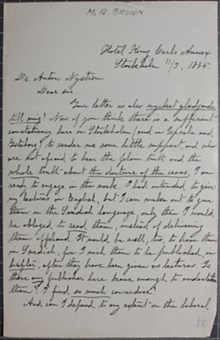 M. A. BROWN
Hotel Kung Carls Annex
Stockholm 11/3, 1895.
Dr. Anton Nystrom
Dear sir
Your letter is also mycket glädjande
till mig! Now if you think there is a sufficient
constituency here in Stockholm (and in Upsala and
Göteborg) to render me some little support, and who
are not afraid to hear the plain truth and the
whole truth about the doctrine of the cross, I am
ready to engage in the work. I had intended to give
my lectures in English, but I can make out to give
them in the Swedish language, only then I would
be obliged to read them, instead of delivering
them offhand. It would be well, too, to have them
in Swedish, for I wish them to be published, in
after they have been given as lectures. Is
there any publisher here brave enough to undertake
them? I find so much cowardice!
And can I depend, to any extent on the liberal